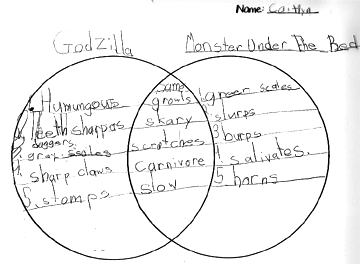 Name: Caitlyn
Godzilla
Monster Under The Bed
1. Humungous
2. Teeth sharp as
daggers.
3. gray scales
4. sharp claws
5. stomps
Same
growls
skary
scratches
carnivore
slow
1. green scales
2 slurps
3 burps
4 salivates.
5 horns